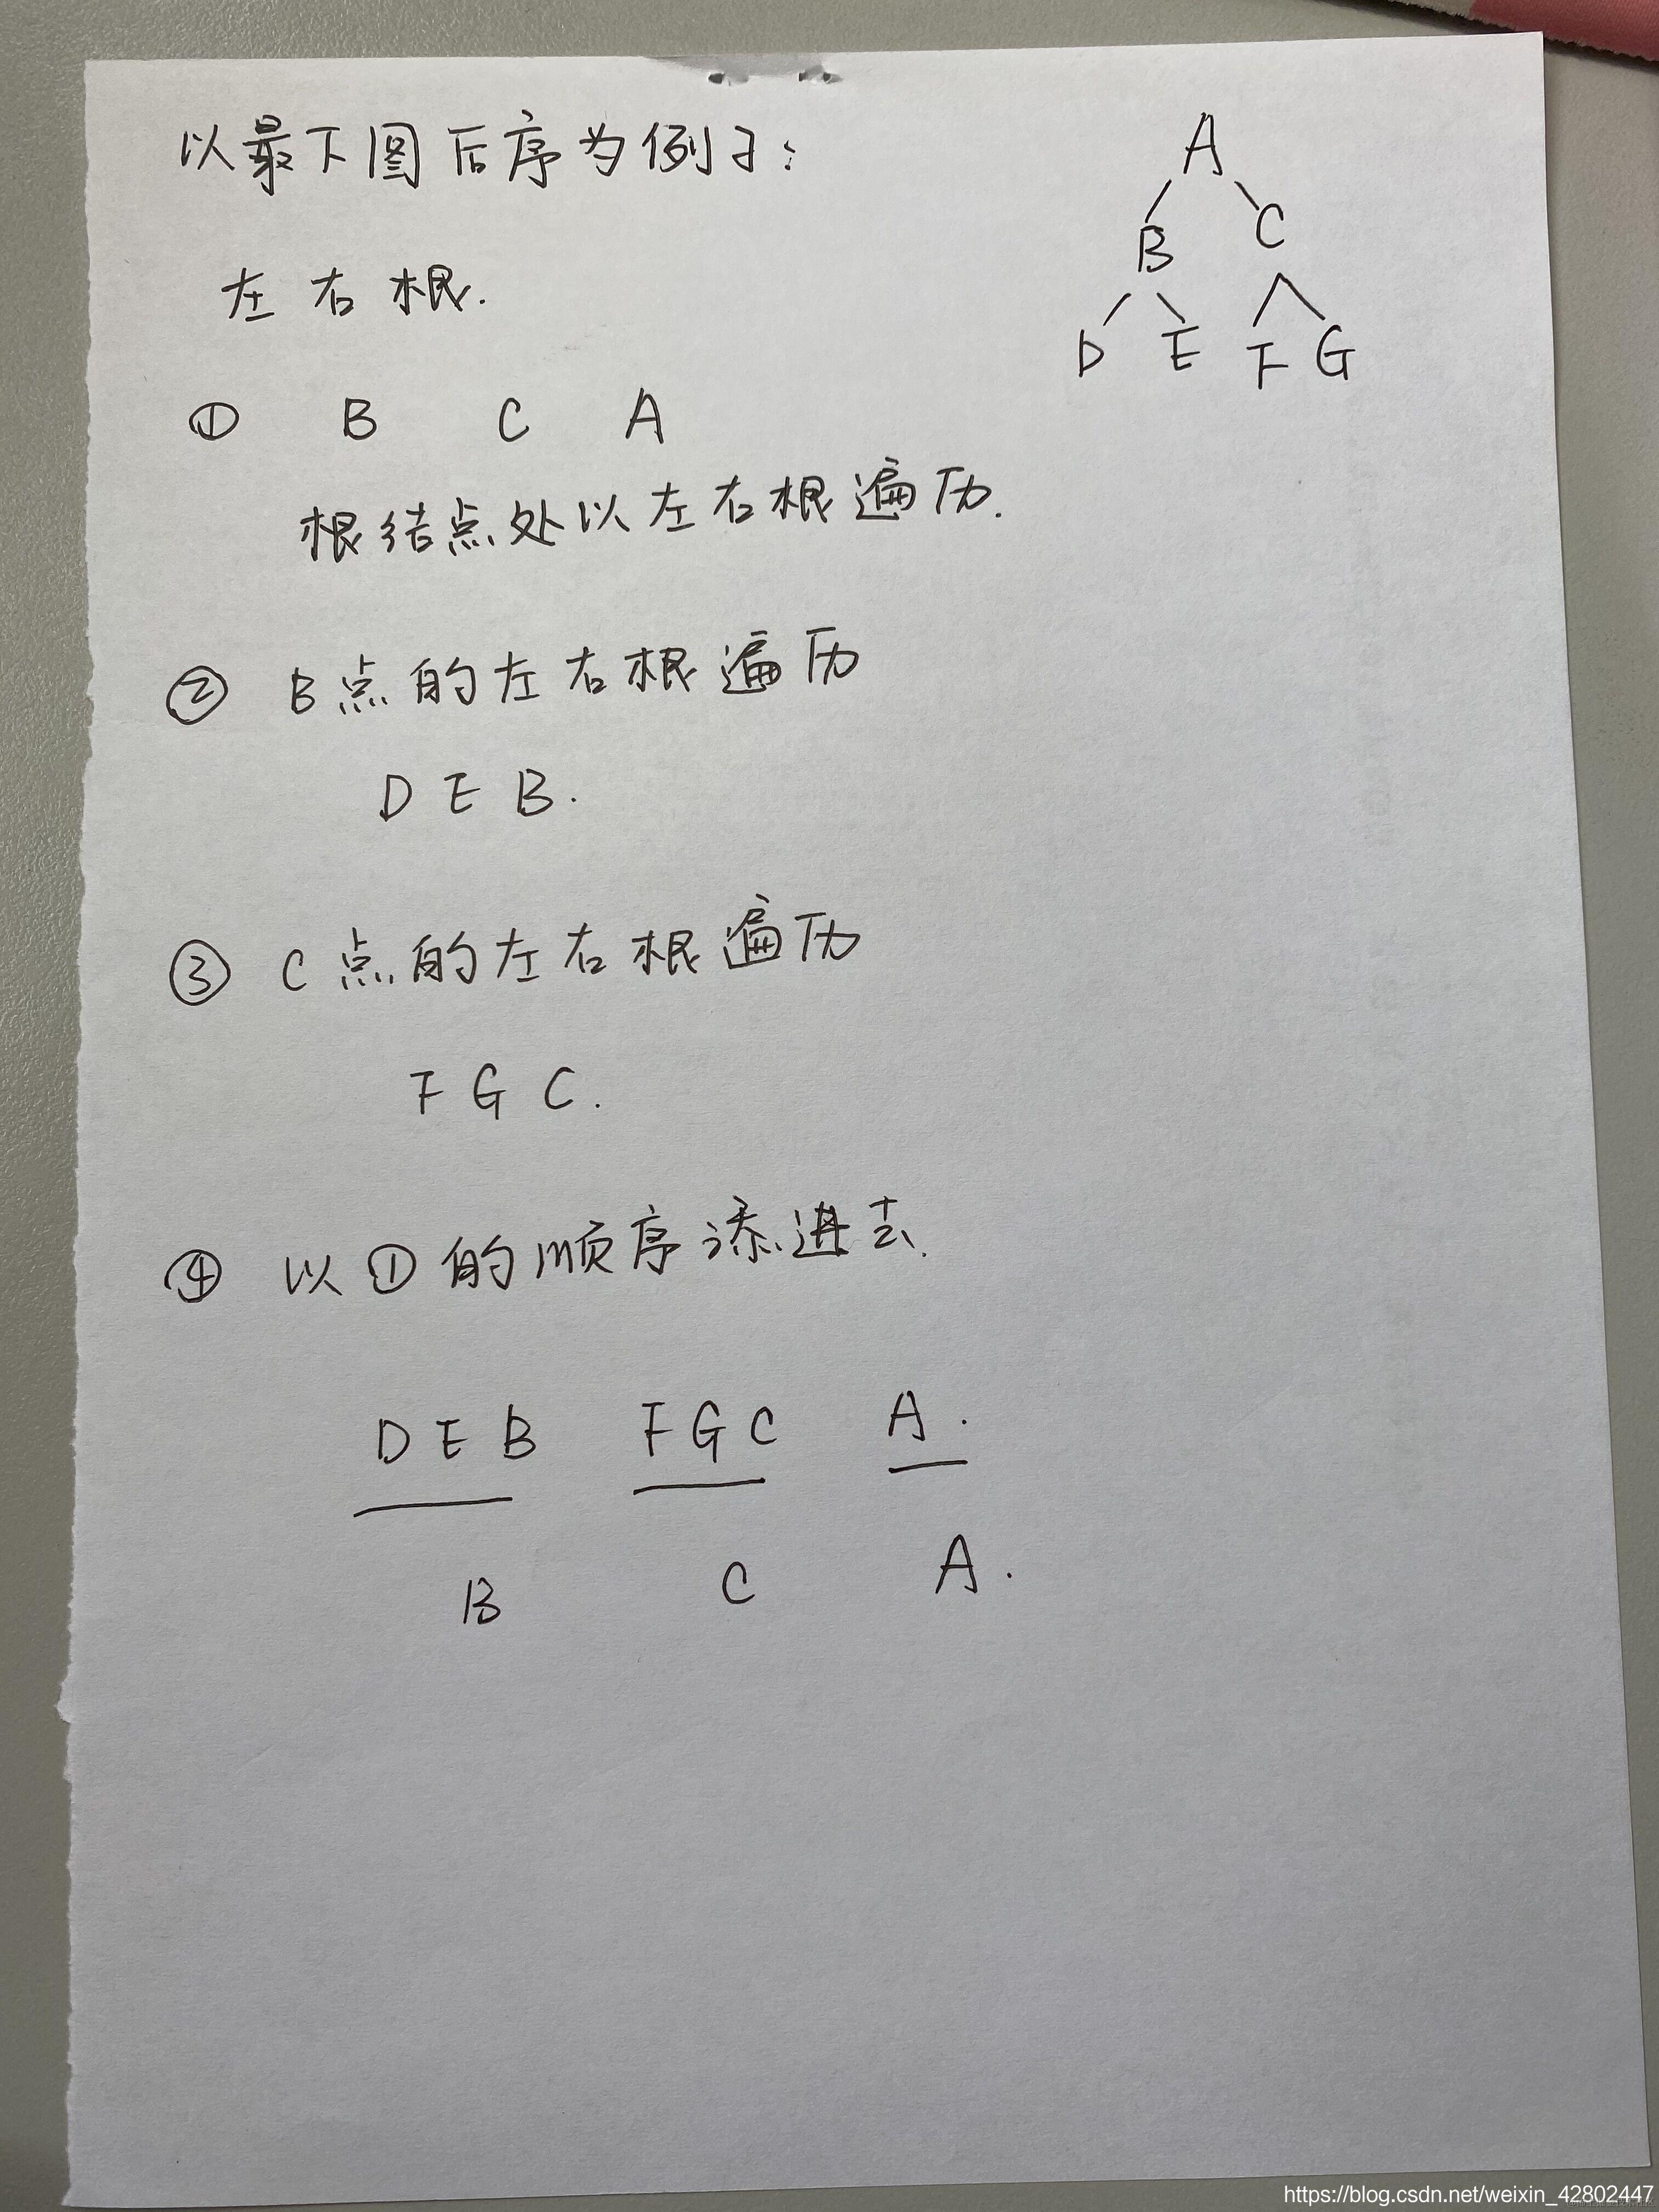 以最下图后序为例子:
A
B C
D E F G
左右根.
① B C A
根结点处以左右根遍历.
② B点的左右根遍历
D E B.
③ C点的左右根遍历
F G C.
④ 以①的顺序添进去.
D E B F G C A.
B C A.
https://blog.csdn.net/weixin_42802447